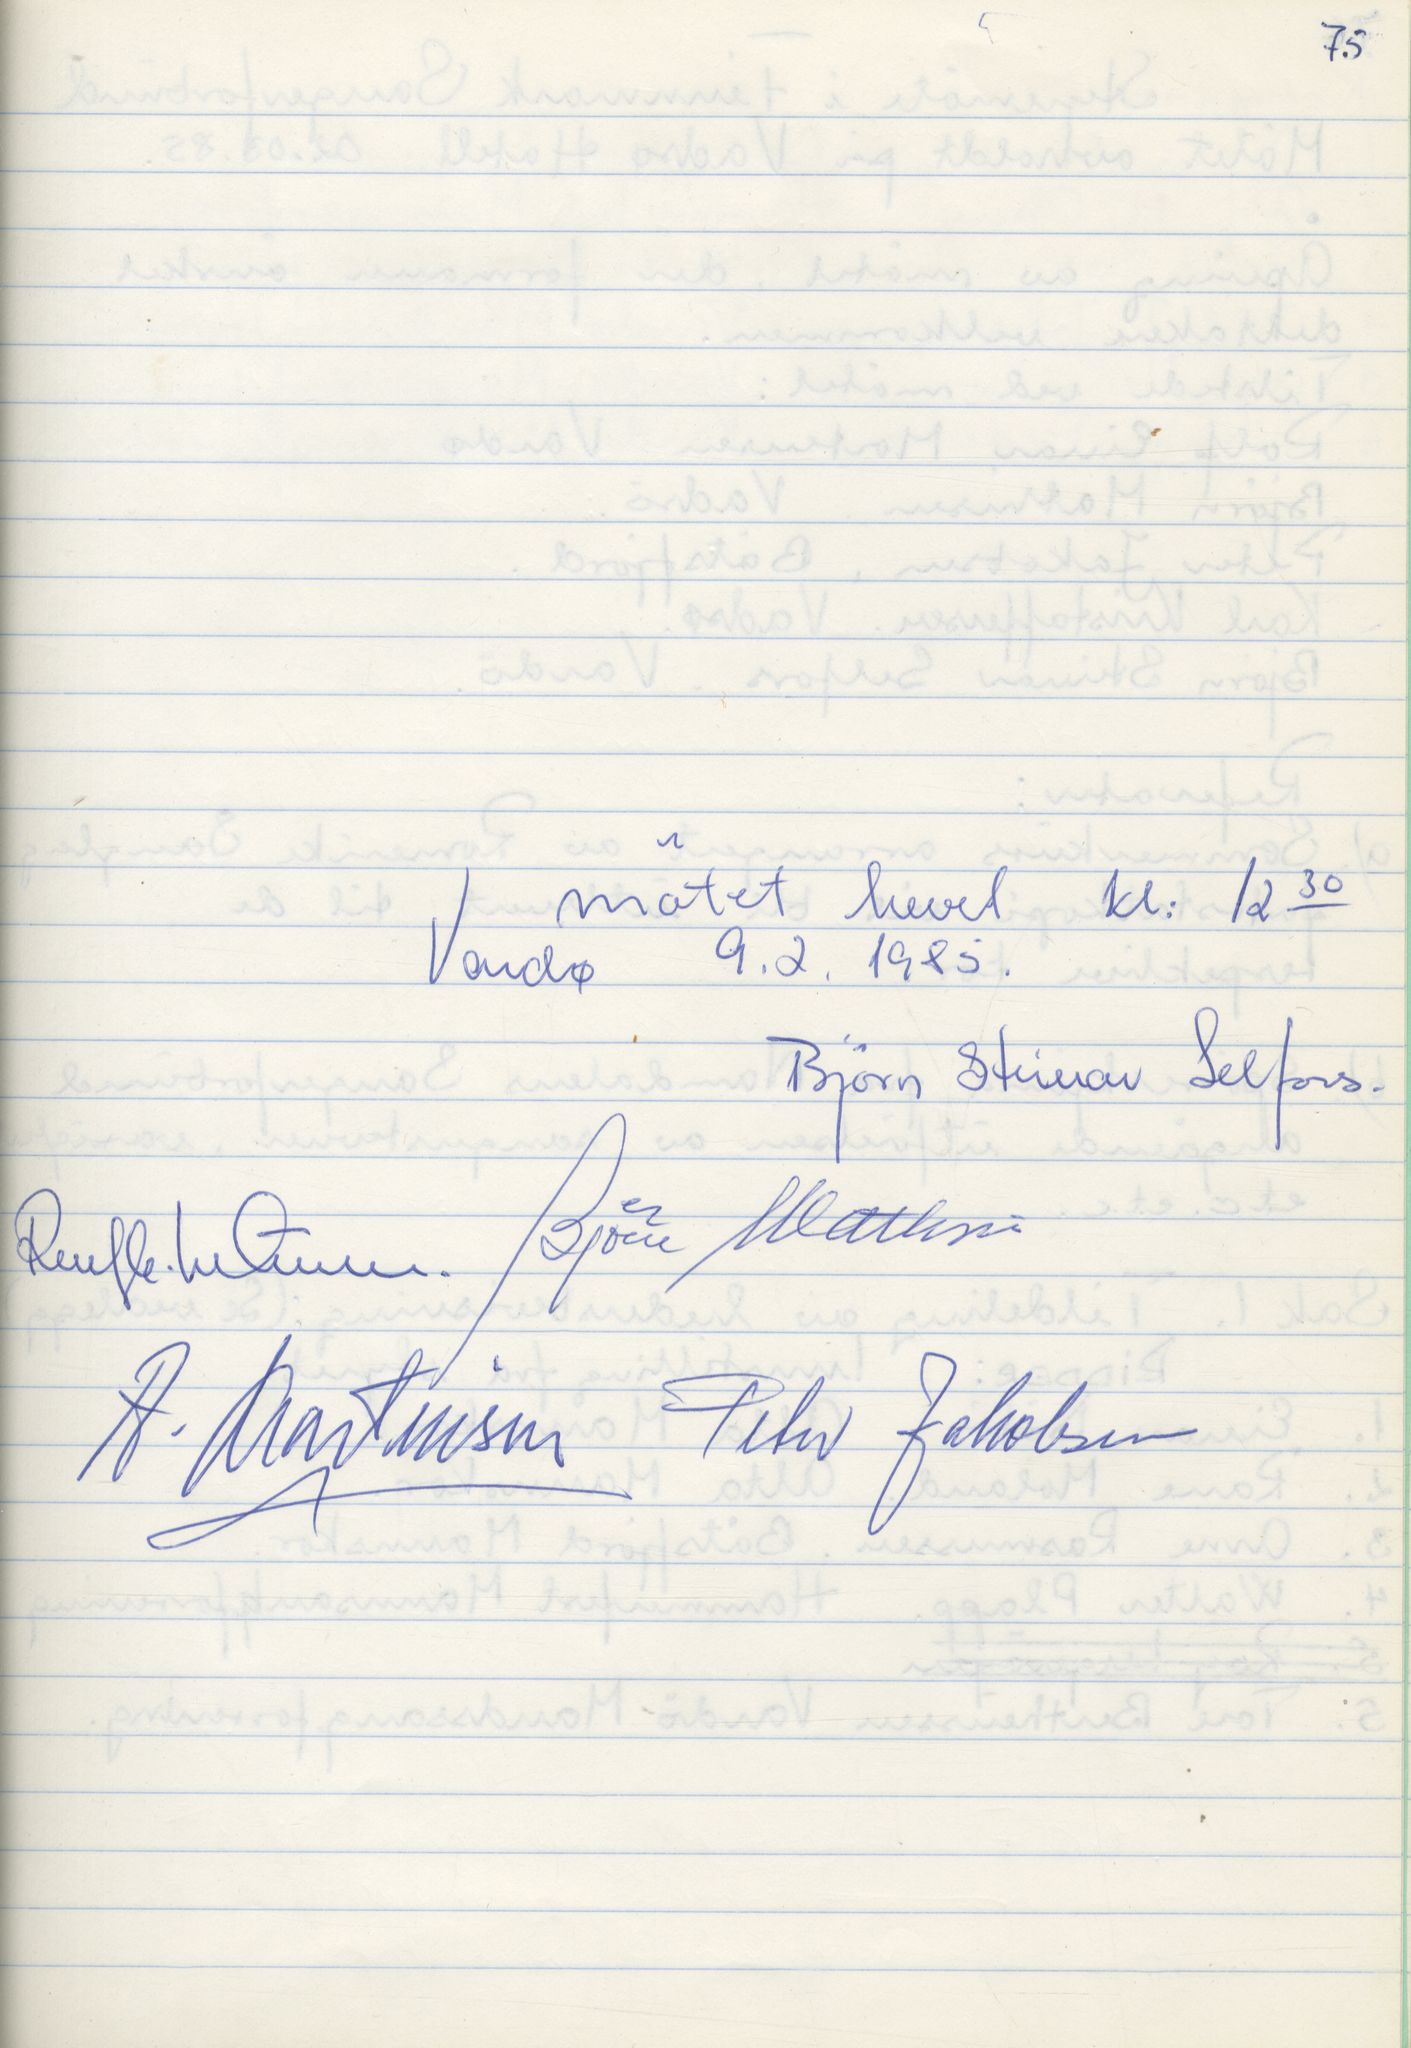 75
møtet hevet kl: 12 30
Vardø 9.2. 1985.
Björn Steinar Selfors.
Bjørn Mathisen
A. Martinsen Peter Jakobsen